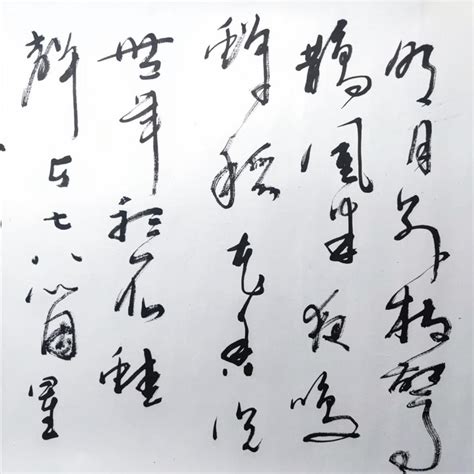 明月別枝驚
鵲風半夜鳴
蟬稻花香說
年聽取蛙
聲片七八個星